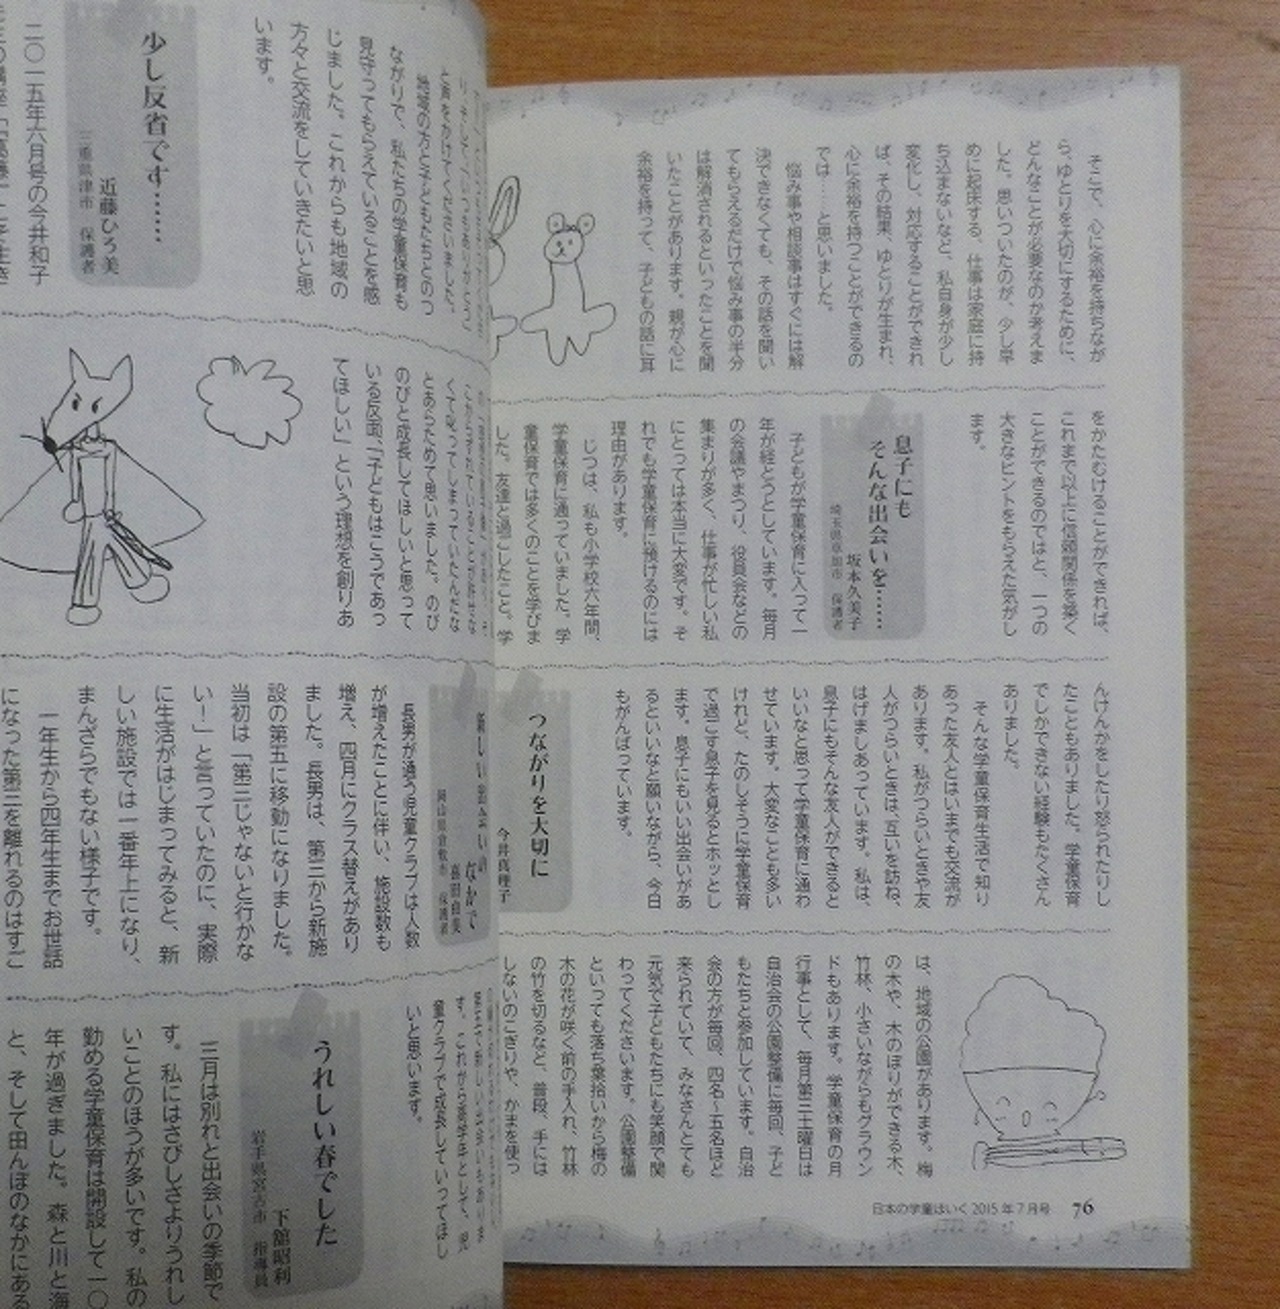 そこで、心に余裕を持ちなが
ら、ゆとりを大切にするために、
どんなことが必要なのか考えま
した。思いついたのが、少し早
めに起床する、仕事は家庭に持
ち込まないなど、私自身が少し
変化し、対応することができれ
ば、その結果、ゆとりが生まれ、
心に余裕を持つことができるの
では……と思いました。
悩み事や相談事はすぐには解
決できなくても、その話を聞い
てもらえるだけで悩み事の半分
は解消されるといったことを聞
いたことがあります。親が心に
余裕を持って、子どもの話に耳
をかたむけることができれば、
これまで以上に信頼関係を築く
ことができるのではと、一つの
大きなヒントをもらえた気がし
ます。
息子にも
そんな出会いを……
坂本久美子
埼玉県草加市 保護者
子どもが学童保育に入って一
年が経とうとしています。毎月
の会議やまつり、役員会などの
集まりが多く、仕事が忙しい私
にとっては本当に大変です。そ
れでも学童保育に預けるのには
理由があります。
じつは、私も小学校六年間、
学童保育に通っていました。学
童保育では多くのことを学びま
した。友達と過ごしたこと。学
んけんかをしたり怒られたりし
たこともありました。学童保育
でしかできない経験もたくさん
ありました。
そんな学童保育生活で知り
あった友人とはいまでも交流が
あります。私がつらいときや友
人がつらいときは、互いを訪ね、
はげましあっています。私は、
息子にもそんな友人ができると
いいなと思って学童保育に通わ
せています。大変なことも多い
けれど、たのしそうに学童保育
で過ごす息子を見るとホッとし
ます。息子にもいい出会いがあ
るといいなと願いながら、今日
もがんばっています。
つながりを大切に
今井真理子
は、地域の公園があります。梅
の木や、木のぼりができる木、
竹林、小さいながらもグラウン
ドもあります。学童保育の月
行事として、毎月第三土曜日は
自治会の公園整備に毎回、子ど
もたちと参加しています。自治
会の方が毎回、四名～五名ほど
来られていて、みなさんとても
元気で子どもたちにも笑顔で関
わってくださいます。公園整備
といっても落ち葉拾いから梅の
木の花が咲く前の手入れ、竹林
の竹を切るなど、普段、手には
しないのこぎりや、かまを使っ
日本の学童ほいく 2015年7月号 76
と声をかけてくださいました。
地域の方と子どもたちとのつ
ながりで、私たちの学童保育も
見守ってもらえていることを感
じました。これからも地域の
方々と交流をしていきたいと思
います。
少し反省です……
近藤ひろ美
三重県津市 保護者
二〇一五年六月号の今井和子
くて叱ってしまっていたんだな
とあらためて思いました。のび
のびと成長してほしいと思って
いる反面、「子どもはこうであっ
てほしい」という理想を創りあ
新しい出会いの
なかで
喜田由美
岡山県倉敷市 保護者
長男が通う児童クラブは人数
が増えたことに伴い、施設数も
増え、四月にクラス替えがあり
ました。長男は、第三から新施
設の第五に移動になりました。
当初は「第三じゃないと行かな
い！」と言っていたのに、実際
に生活がはじまってみると、新
しい施設では一番年上になり、
まんざらでもない様子です。
一年生から四年生までお世話
になった第三を離れるのはすご
す。これから高学年として、児
童クラブで成長していってほし
いと思います。
うれしい春でした
下舘昭利
岩手県宮古市 指導員
三月は別れと出会いの季節で
す。私にはさびしさよりうれし
いことのほうが多いです。私の
勤める学童保育は開設して一〇
年が過ぎました。森と川と海
と、そして田んぼのなかにある